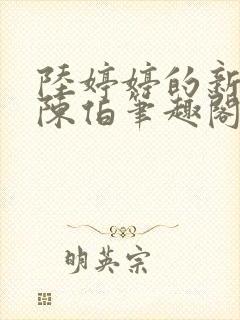 陸婷婷的新
陳伯筆趣閣
明英宗